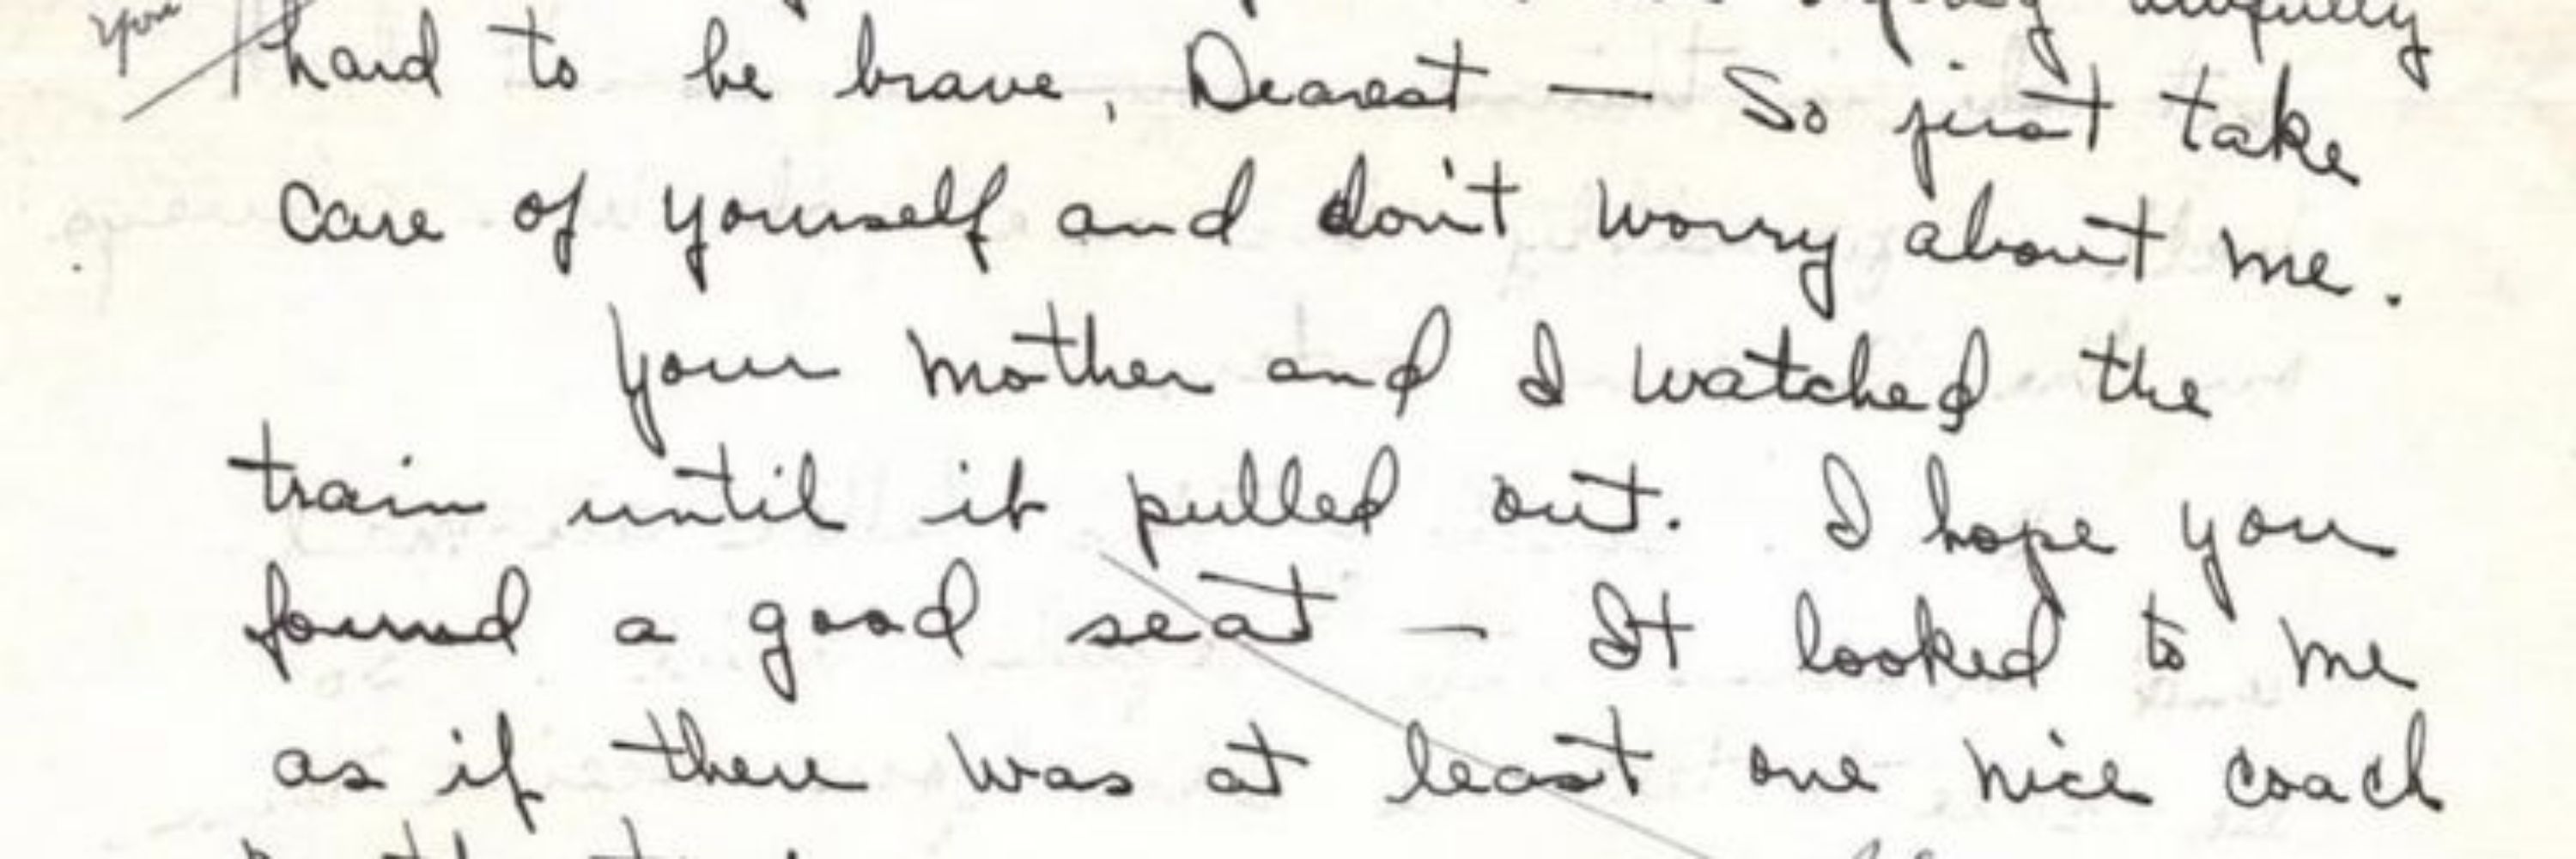 you
awfully
hard to be brave, Dearest — So just take
care of yourself and don't worry about me.
Your mother and I watched the
train until it pulled out. I hope you
found a good seat — It looked to me
as if there was at least one nice coach